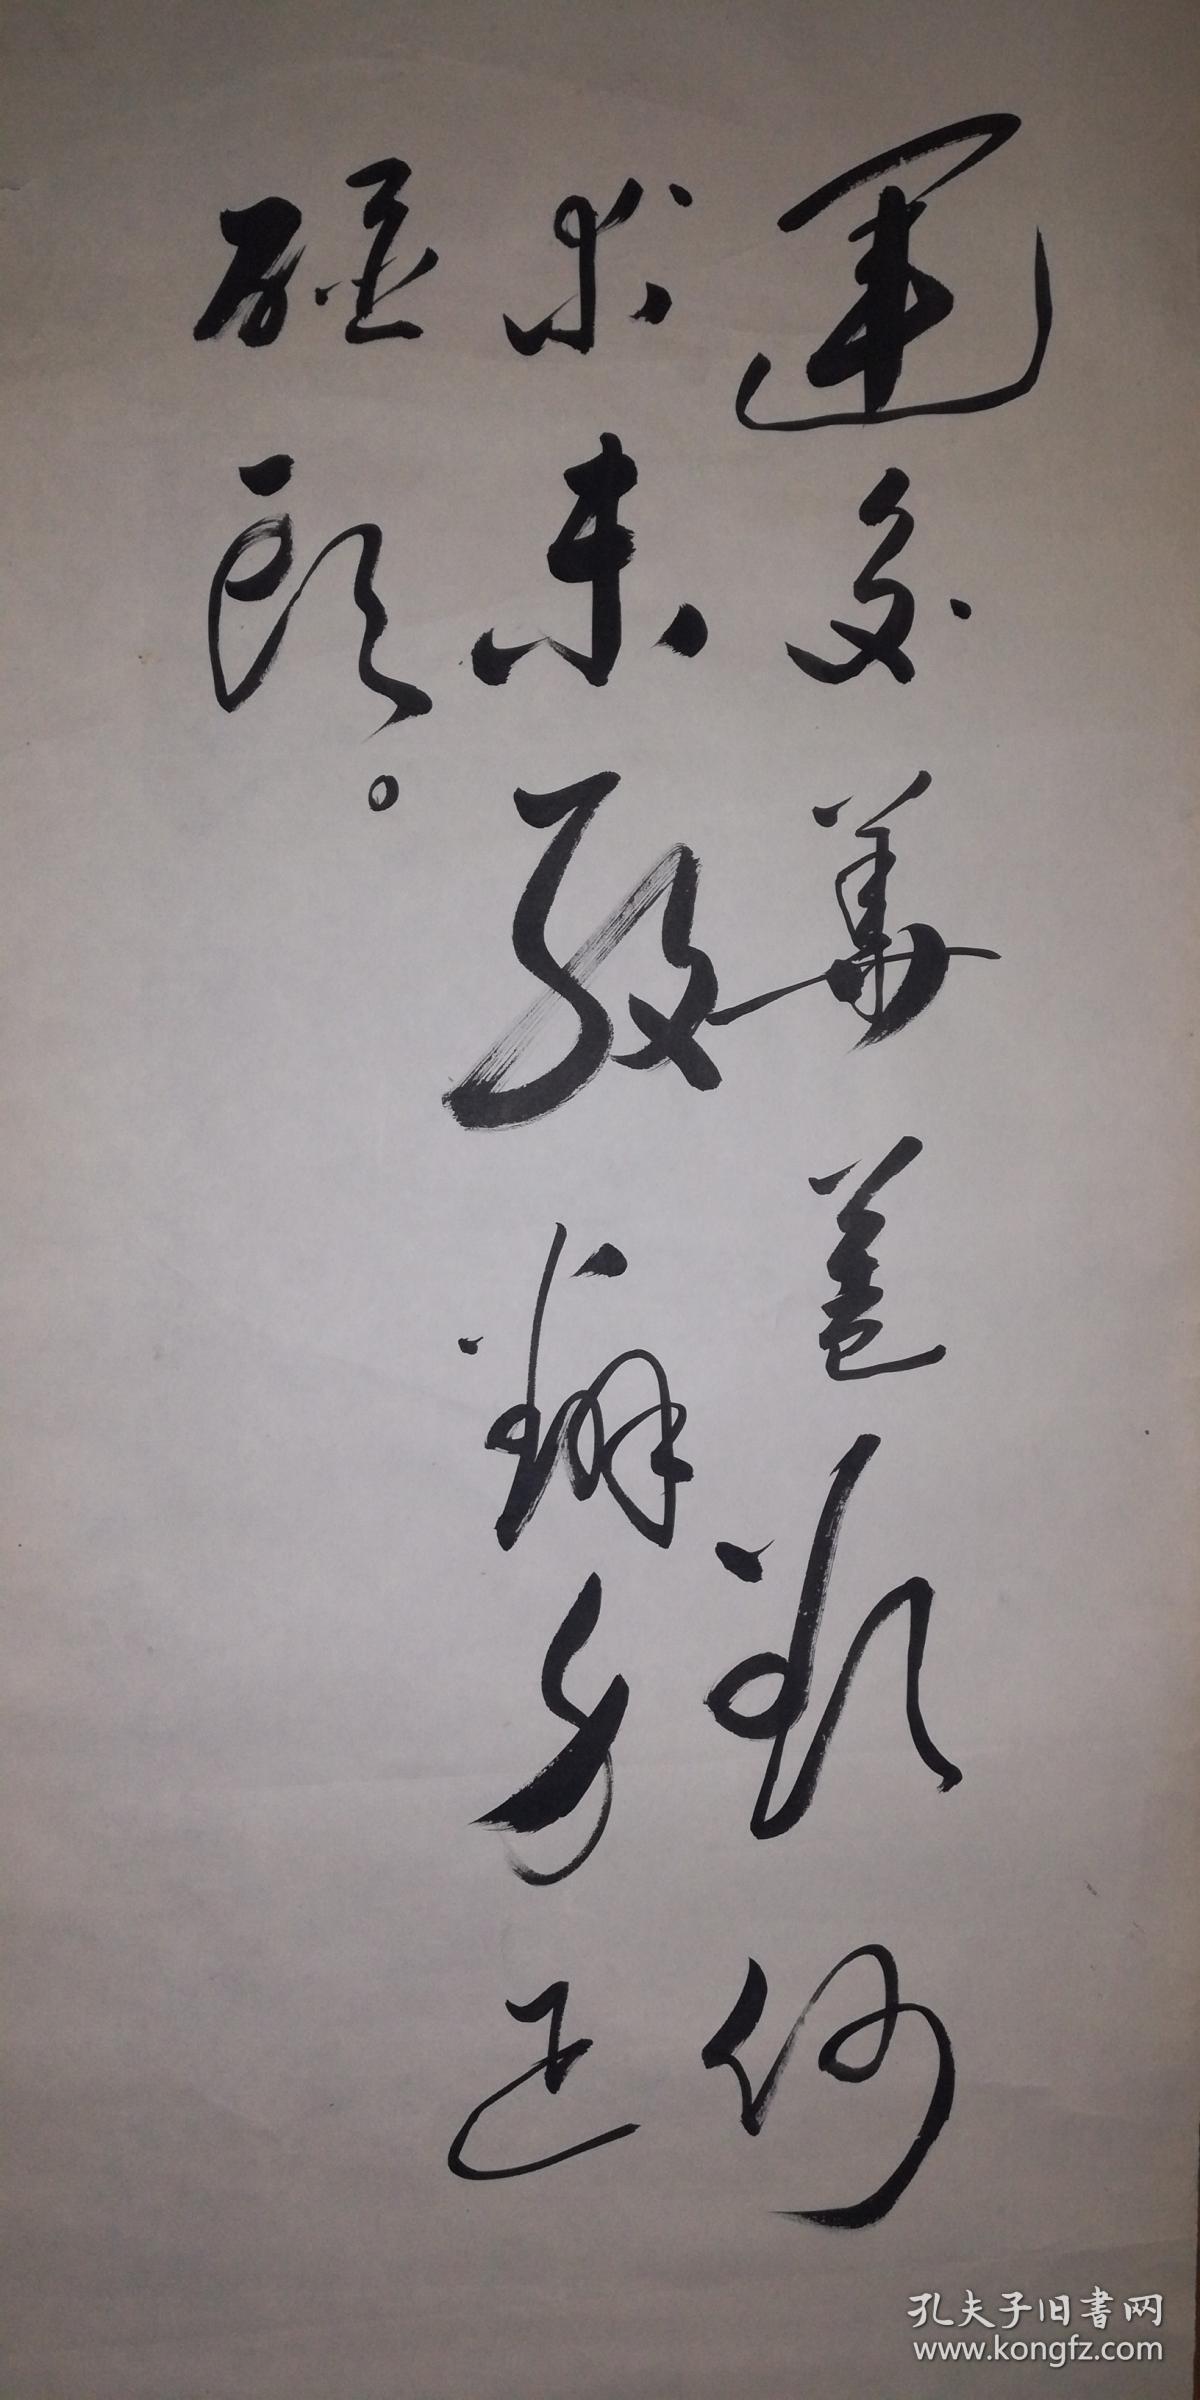 運交華蓋欲何
求未敢翻身已
碰頭。
孔夫子旧书网
www.kongfz.com